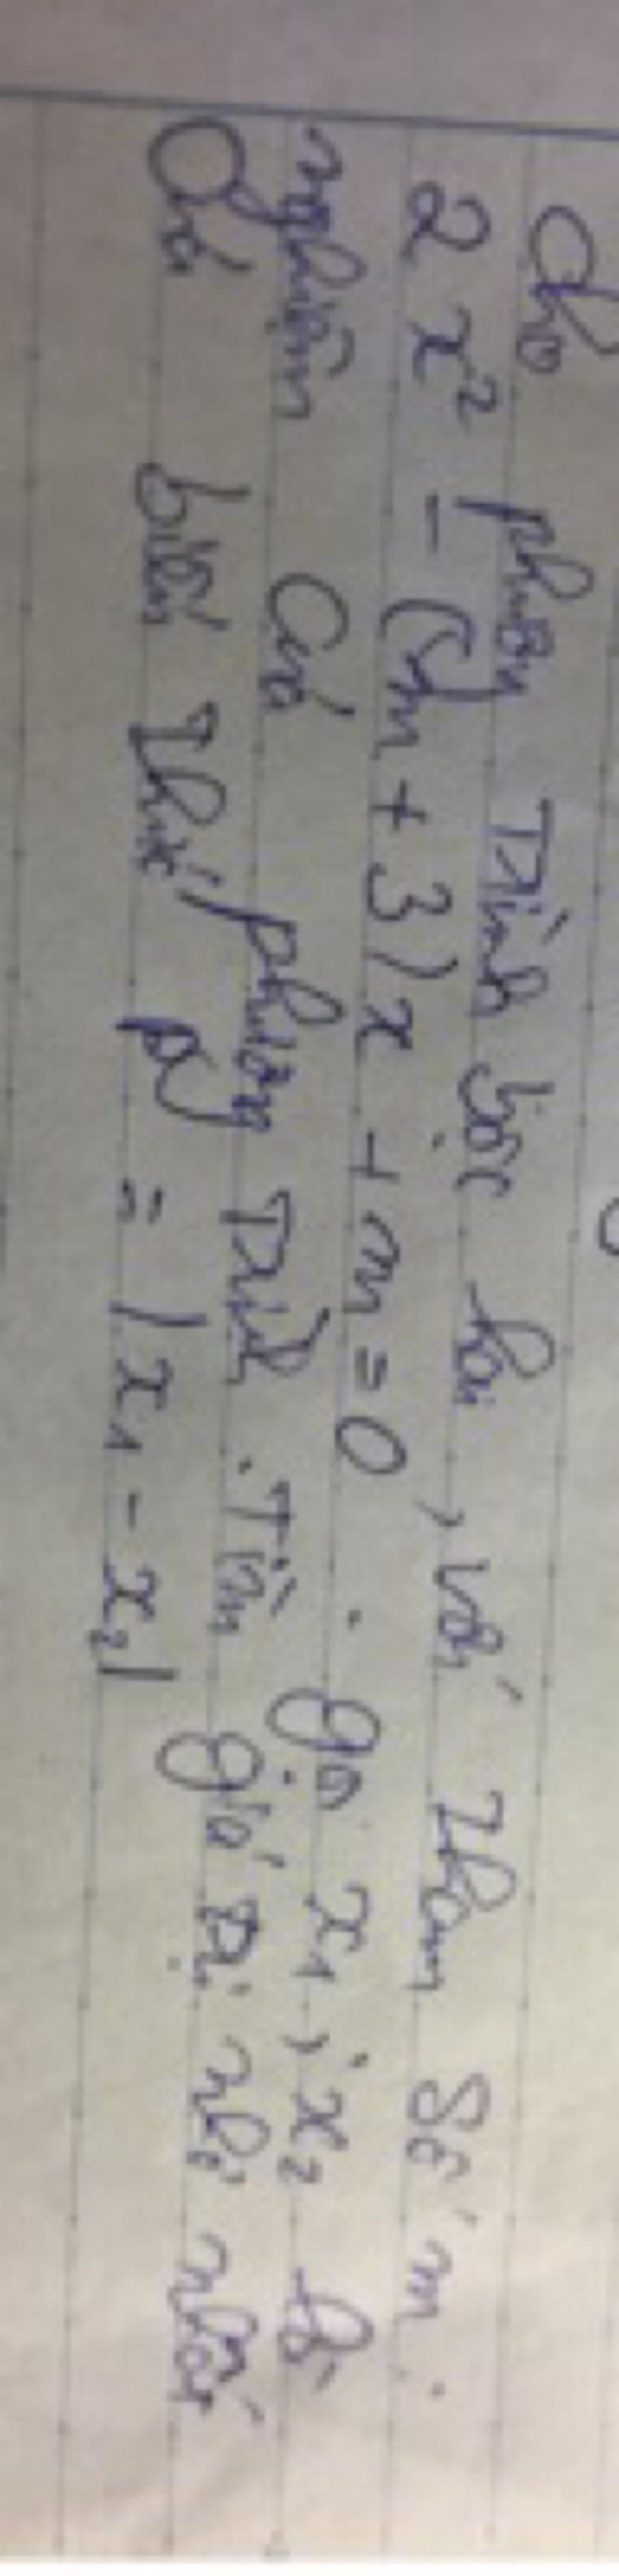 Cho phương trình bậc hai, với tham số m.
2x² - (m + 3)x + m = 0. gọi x₁, x₂ là
nghiệm của phương trình. Tìm giá trị nhỏ nhất
Của biểu thức p = |x₁ - x₂|